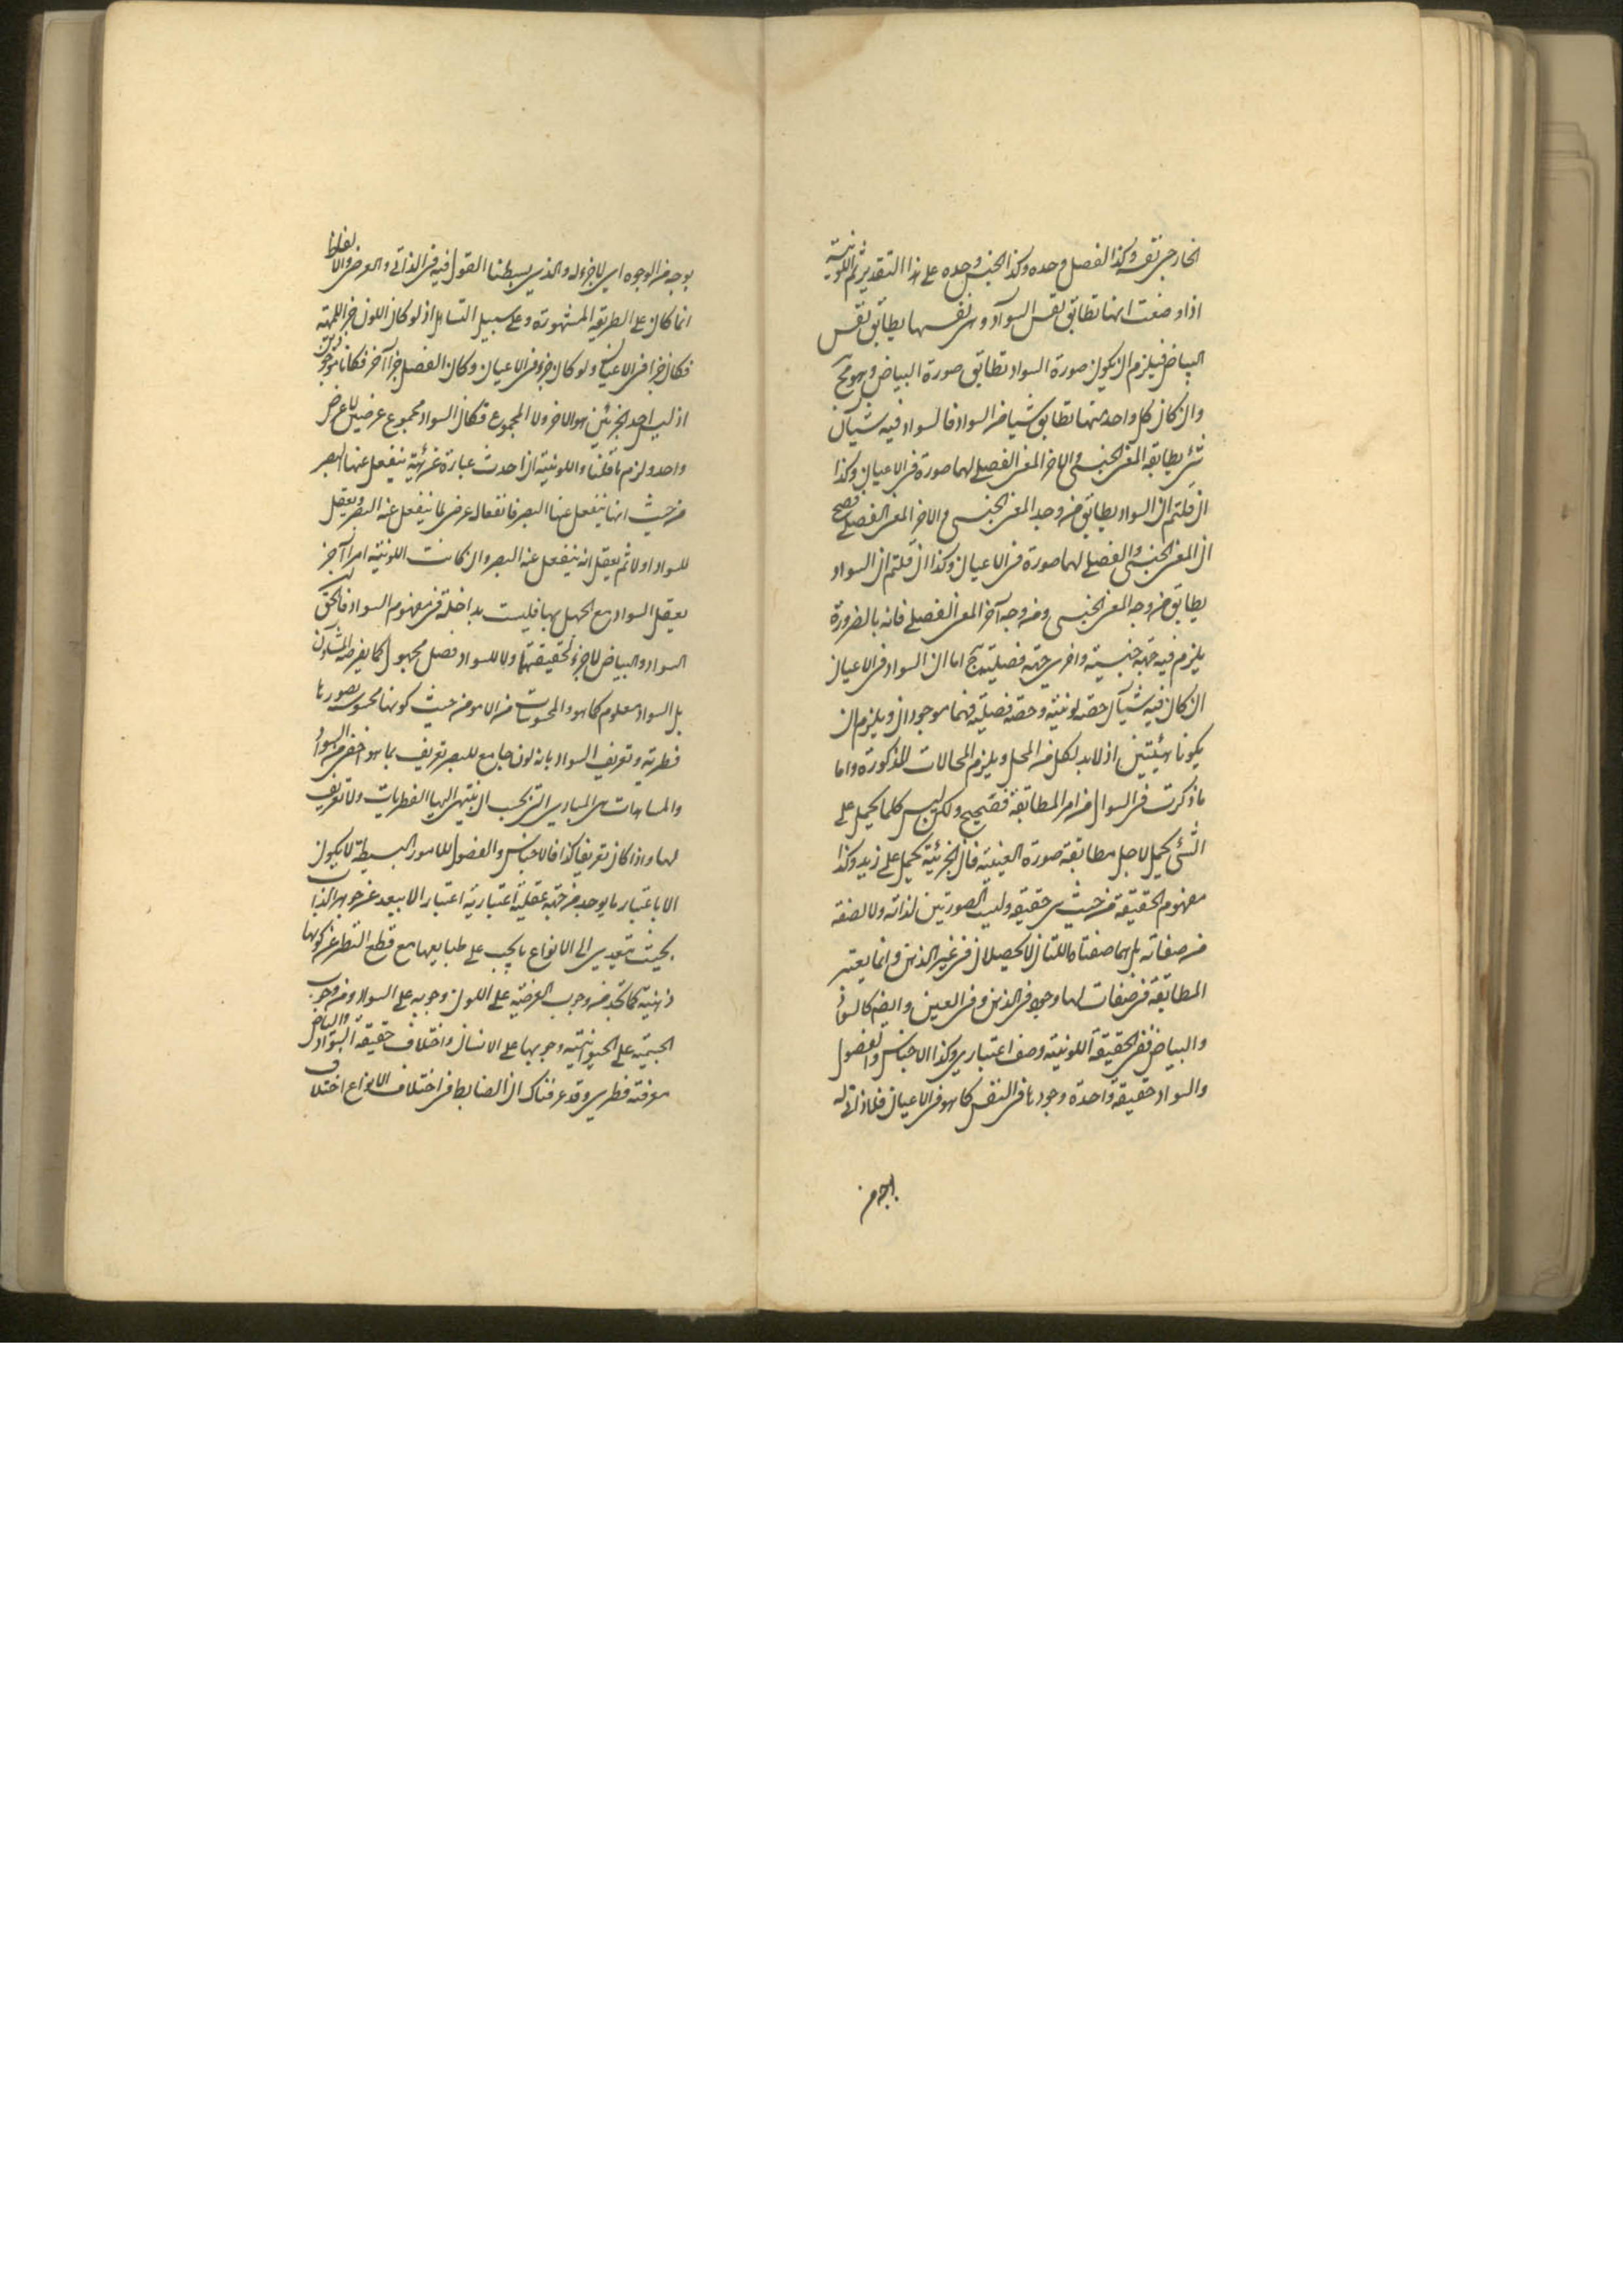 الخارجى نفسه وكذا الفصل وحده وكذا الجنس وحده على هذا التقدير ثم اللونية
اذا وضعت انها تطابق نفس السواد وهى نفسها يطابق نفس
البياض فيلزم ان يكون صورة السواد تطابق صورة البياض وهو مح
وان كان كل واحد منها تطابق شيئا من السواد فالسواد فيه شيآن
شئ يطابقه المعنى الجنسى والاخر المعنى الفصلى لهما صورة فى الاعيان وكذا
ان قلتم ان السواد يطابق من وجه المعنى الجنسى والاخر المعنى الفصلى فصح
ان المعنى الجنسى والفصلى لهما صورة فى الاعيان وكذا ان قلتم ان السواد
يطابق من وجه المعنى الجنسى ومن وجه آخر المعنى الفصلى فانه بالضرورة
يلزم فيه جهة جنسية واخرى جهة فصلية مح اما ان السواد فى الاعيان
ان كان فيه شيآن حصة لونية وحصة فصلية فهما موجودان ويلزم ان
يكونا هيئتين اذ لابد لكل من المحل ويلزم المحالات المذكورة واما
ما ذكرت فى السوال من امر المطابقة فصحيح ولكن ليس كلما يحمل على
الشئ يحمل لاجل مطابقة صورة العينية فان الجزئية يحمل على زيد وكذا
مفهوم الحقيقة من حيث هى حقيقة وليست الصورتين لذاته ولا لصفة
من صفاته بل هما صفتاه اللتان لا تحصلان فى غير الذهن وانما يعتبر
المطابقة فى صفات لها وجود فى الذهن وفى العين وايضا كالسواد
والبياض ففى الحقيقة اللونية وصف اعتبارى وكذا الاجناس والفصول
والسواد حقيقة واحدة وجودها فى النفس كما هو فى الاعيان فلا ذاتى له
بوجه من الوجوه اى لا جزء له والذى بسطنا القول فيه فى الذاتى والعرضى والالفاظ
انما كان على الطريقة المشهورة وعلى سبيل التساهل اذ لو كان اللون جزء للمهية
فكان جزا فى الاعيان ولو كان جزء فى الاعيان وكان الفصل جزا آخر فكانا موجودين
اذ ليس احد الجزئين هو الاخر ولا المجموع فكان السواد مجموع عرضين لا عرض
واحد ولزم ما قلنا واللونية ان اخذت عبارة عن هيئة ينفعل عنها البصر
من حيث انها ينفعل عنها البصر فانفعال عرض لما ينفعل عنه البصر ويعقل
للسواد اولا ثم يعقل انه ينفعل عنه البصر وان كانت اللونية امرا آخر
يعقل السواد مع الجهل بها فليست بداخلة فى مفهوم السواد فالحق
السواد والبياض لا جزء لحقيقتهما ولا للسواد فصل مجهول كما يفرضه المشاؤن
بل السواد معلوم كما هو والمحسوسات من الامور من حيث كونها محسوسة تصورها
فطرية وتعريف السواد بانه لون جامع للبصر تعريف بما هو اخفى من السواد
والمساهات هى المبادى التى يجب ان ينتهى اليها الفطريات ولا تعريف
لها واذا كان تعريفها كذا فالاجناس والفصول للامور البسيطة لا يكون
الا باعتبار ما يوجد من جهة عقلية اعتبارية اعتبار الا يبعد عن جوهر الذات
بحيث يتعدى الى الانواع ما يجب على طبايعها مع قطع النظر عن كونها
ذهنية كما تجد من وجوب العرضية على اللون وجوبه على السواد ومن وجوب
الجسمية على الحيوانية وجوبها على الانسان واختلاف حقيقة السواد والبياض
معرفته فطرى وقد عرفناك ان الضابط فى اختلاف الانواع اختلاف